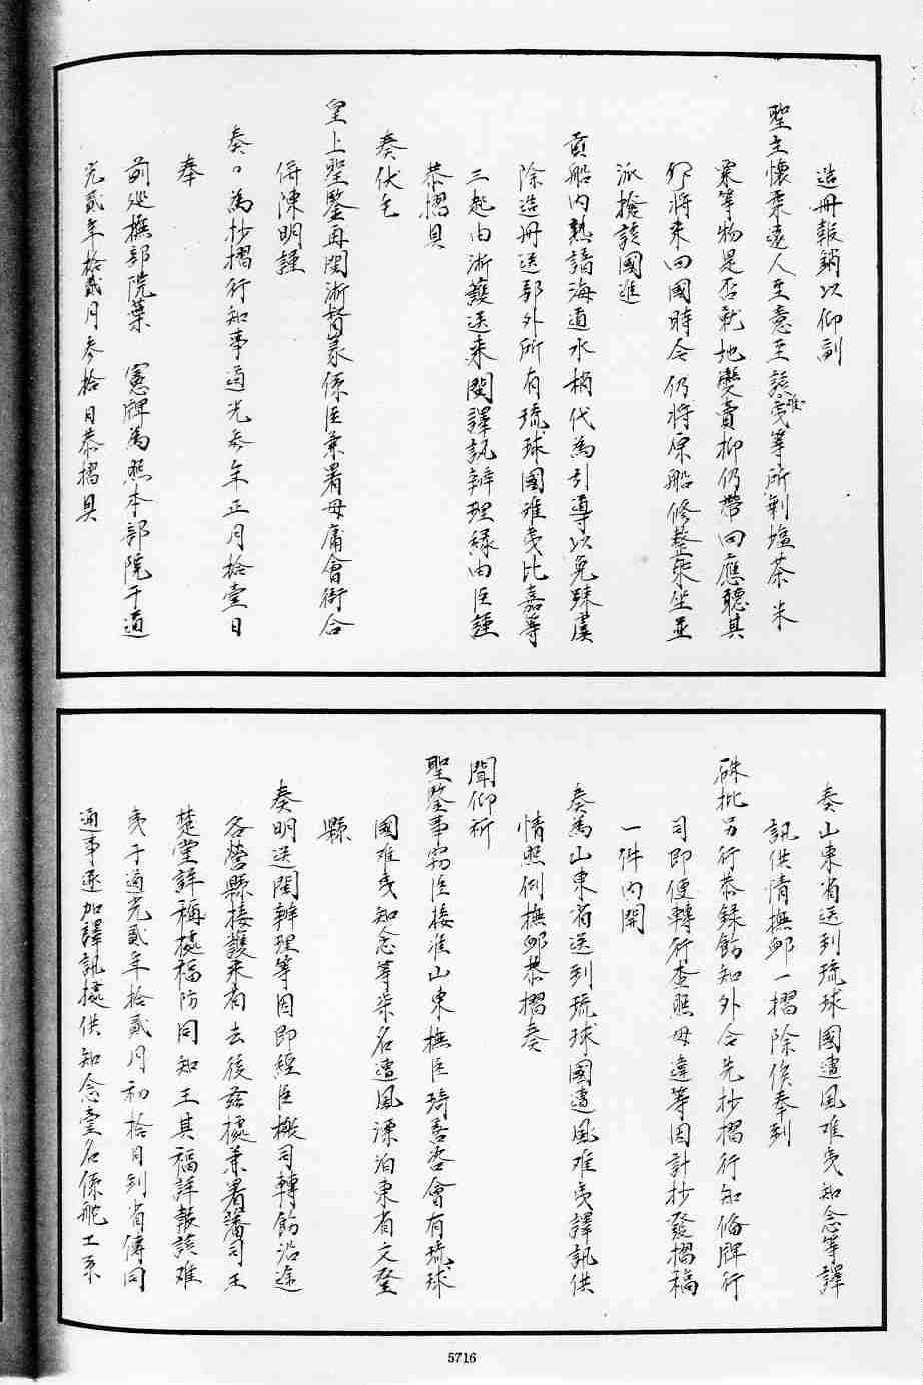 造冊報銷以仰副
聖主懷柔遠人至意至該難夷等所剩塩茶米
粟等物是否就地變賣抑仍帶回應聽其
便將來回國時令仍將原船修整乘坐並
派撥該國進
貢船內熟諳海道水梢代為引導以免疎虞
除造冊送部外所有琉球國难夷比嘉等
三起由浙護送來閩譯訊辦理緣由臣謹
恭摺具
奏伏乞
皇上聖鑒再閩浙督篆係臣兼署毋庸會銜合
併陳明謹
奏、為抄摺行知事道光叁年正月拾壹日
奉
前廵撫部院葉 憲牌為照本部院于道
光貳年拾貳月叁拾日恭摺具
奏山東省送到琉球國遭風难夷知念等譯
訊供情撫卹一摺除俟奉到
硃批另行恭録飭知外合先抄摺行知俻牌行
司即便轉行查照毋違等因計抄發摺稿
一件內開
奏為山東省送到琉球國遭風难夷譯訊供
情照例撫卹恭摺奏
聞仰祈
聖鑒事窃臣接准山東撫臣琦善咨會有琉球
國难夷知念等柒名遭風漂泊東省文登
縣
奏明送閩辦理等因即經臣檄司轉飭沿途
各營縣接護來省去後兹據兼署藩司王
楚堂詳稱據福防同知王其福詳報該难
夷于道光貳年拾貳月初拾日到省傳同
通事逐加譯訊據供知念壹名係舵工系
5716